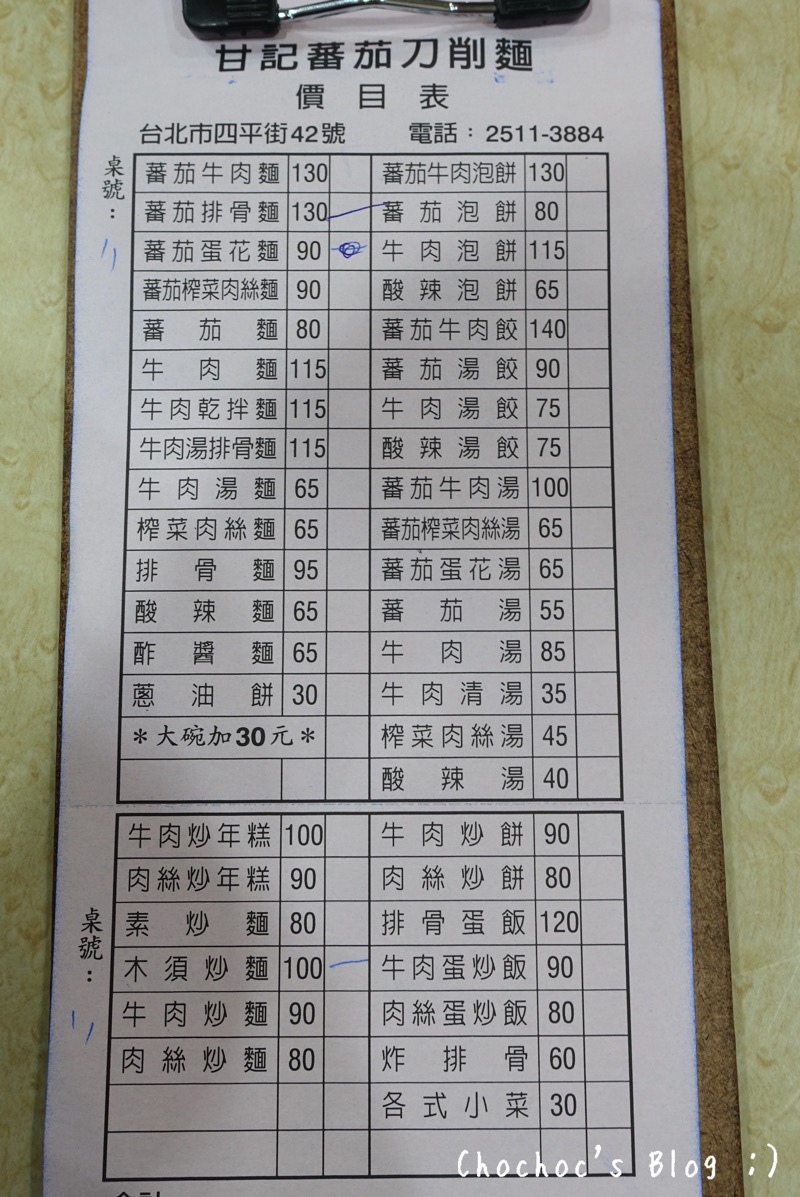 甘記蕃茄刀削麵
價目表
台北市四平街42號 電話：2511-3884
桌號：
蕃茄牛肉麵 130 蕃茄牛肉泡餅 130
蕃茄排骨麵 130 蕃茄泡餅 80
蕃茄蛋花麵 90 牛肉泡餅 115
蕃茄榨菜肉絲麵 90 酸辣泡餅 65
蕃茄麵 80 蕃茄牛肉餃 140
牛肉麵 115 蕃茄湯餃 90
牛肉乾拌麵 115 牛肉湯餃 75
牛肉湯排骨麵 115 酸辣湯餃 75
牛肉湯麵 65 蕃茄牛肉湯 100
榨菜肉絲麵 65 蕃茄榨菜肉絲湯 65
排骨麵 95 蕃茄蛋花湯 65
酸辣麵 65 蕃茄湯 55
酢醬麵 65 牛肉湯 85
蔥油餅 30 牛肉清湯 35
＊大碗加30元＊ 榨菜肉絲湯 45
酸辣湯 40
桌號：
牛肉炒年糕 100 牛肉炒餅 90
肉絲炒年糕 90 肉絲炒餅 80
素炒麵 80 排骨蛋飯 120
木須炒麵 100 牛肉蛋炒飯 90
牛肉炒麵 90 肉絲蛋炒飯 80
肉絲炒麵 80 炸排骨 60
各式小菜 30
Chochoc's Blog ;)